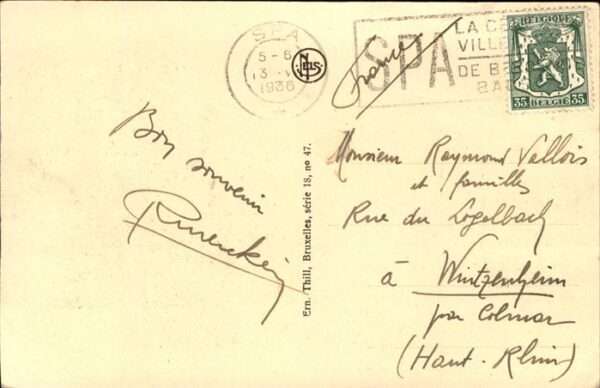 SPA
5-6
13
1936
NELS
SPA
LA
VILLE
DE
BA
BELGIQUE
35 BELGIE 35
France
Bon souvenir
Ern. Thill, Bruxelles, série 18, no 47.
Monsieur Raymond Vallois
et familles
Rue du Logelbach
à Wintzenheim
par Colmar
(Haut-Rhin)